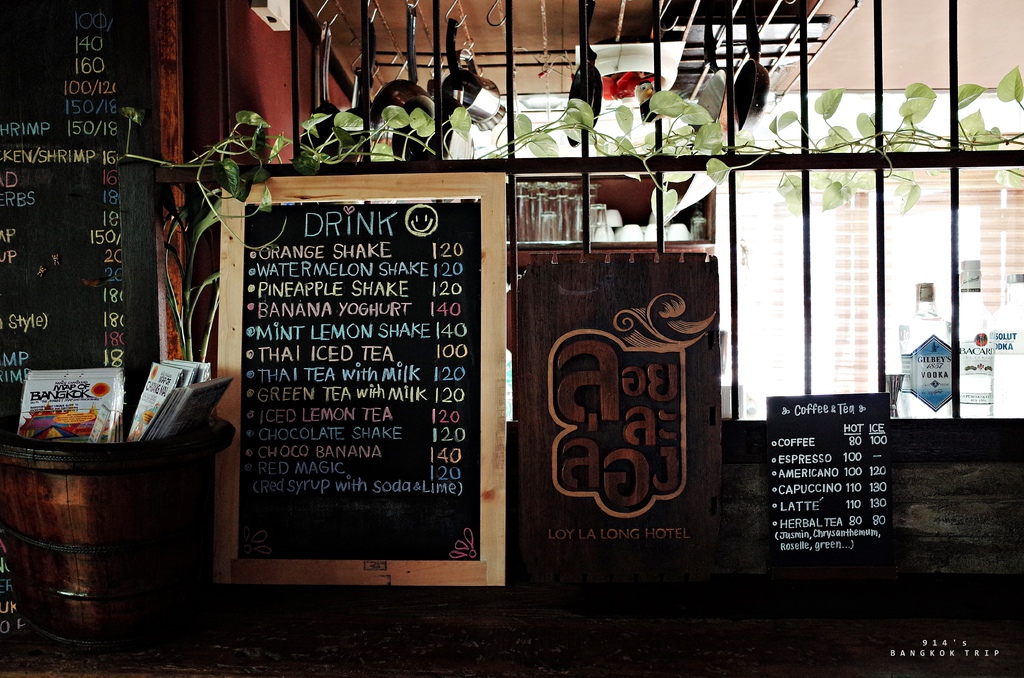 100/
140
160
100/120
150/18
HRIMP 150/18
CKEN/SHRIMP
ERBS
150/
UP
n Style)
DRINK
ORANGE SHAKE 120
WATERMELON SHAKE 120
PINEAPPLE SHAKE 120
BANANA YOGHURT 140
MINT LEMON SHAKE 140
THAI ICED TEA 100
THAI TEA with MILK 120
GREEN TEA with MILK 120
ICED LEMON TEA 120
CHOCOLATE SHAKE 120
CHOCO BANANA 140
RED MAGIC 120
(Red syrup with soda & Lime)
MAP OF
BANGKOK
ลอย
ละ
ล่อง
LOY LA LONG HOTEL
Coffee & Tea
HOT ICE
COFFEE 80 100
ESPRESSO 100 —
AMERICANO 100 120
CAPUCCINO 110 130
LATTE' 110 130
HERBAL TEA 80 80
(Jasmin, Chrysanthemum,
Roselle, green...)
GILBEY'S
VODKA
BACAR
SOLUT
ODKA
914's
BANGKOK TRIP